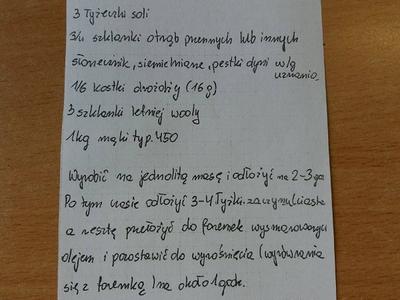 3 łyżeczki soli
3/4 szklanki otrąb pszennych lub innych
słonecznik, siemię lniane, pestki dyni w/g
uznania.
1/6 kostki drożdży (16 g)
3 szklanki letniej wody
1 kg mąki typ. 450
Wyrobić na jednolitą masę i odłożyć na 2-3 godz
Po tym czasie odłożyć 3-4 łyżki zaczynu/ciasta
a resztę przełożyć do foremek wysmarowanych
olejem i pozostawić do wyrośnięcia (wyrównania
się z foremką) na około 1 godz.